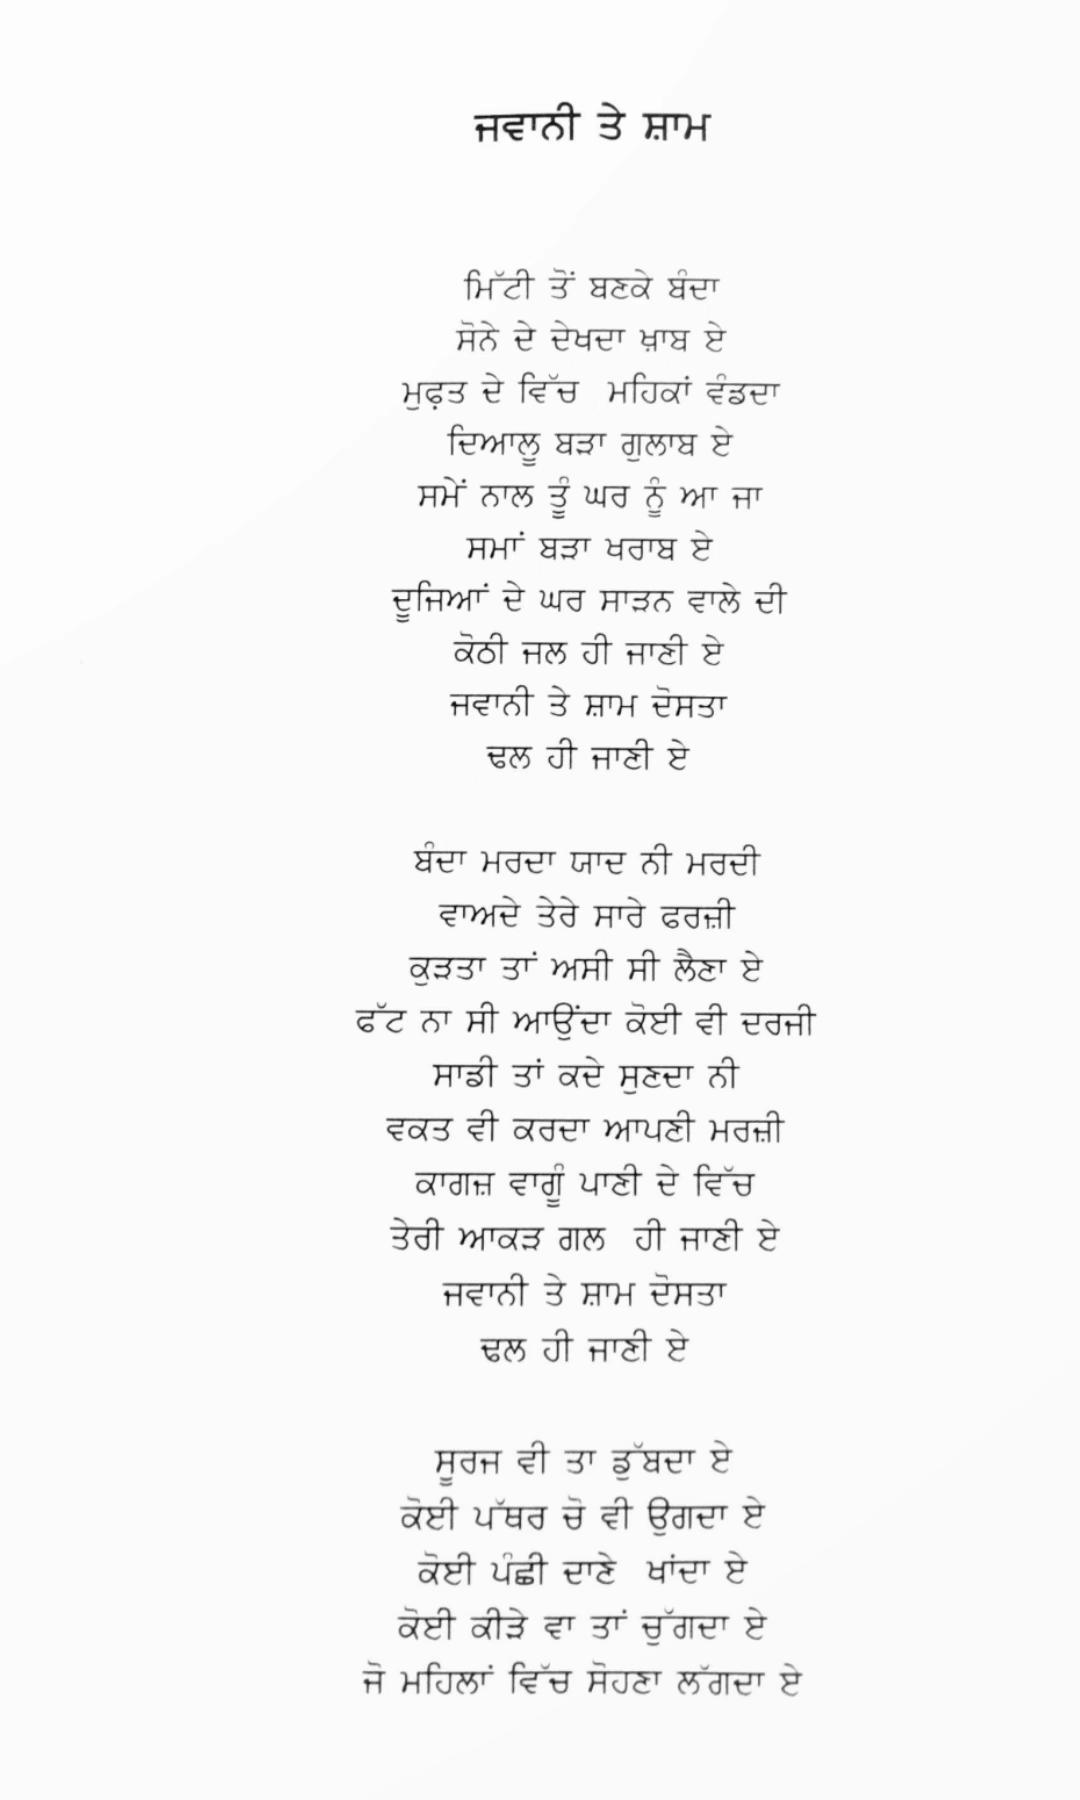 ਜਵਾਨੀ ਤੇ ਸ਼ਾਮ
ਮਿੱਟੀ ਤੋਂ ਬਣਕੇ ਬੰਦਾ
ਸੋਨੇ ਦੇ ਦੇਖਦਾ ਖ਼ਾਬ ਏ
ਮੁਫ਼ਤ ਦੇ ਵਿੱਚ ਮਹਿਕਾਂ ਵੰਡਦਾ
ਦਿਆਲੂ ਬੜਾ ਗੁਲਾਬ ਏ
ਸਮੇਂ ਨਾਲ ਤੂੰ ਘਰ ਨੂੰ ਆ ਜਾ
ਸਮਾਂ ਬੜਾ ਖਰਾਬ ਏ
ਦੂਜਿਆਂ ਦੇ ਘਰ ਸਾੜਨ ਵਾਲੇ ਦੀ
ਕੋਠੀ ਜਲ ਹੀ ਜਾਣੀ ਏ
ਜਵਾਨੀ ਤੇ ਸ਼ਾਮ ਦੋਸਤਾ
ਢਲ ਹੀ ਜਾਣੀ ਏ
ਬੰਦਾ ਮਰਦਾ ਯਾਦ ਨੀ ਮਰਦੀ
ਵਾਅਦੇ ਤੇਰੇ ਸਾਰੇ ਫਰਜ਼ੀ
ਕੁੜਤਾ ਤਾਂ ਅਸੀ ਸੀ ਲੈਣਾ ਏ
ਫੱਟ ਨਾ ਸੀ ਆਉਂਦਾ ਕੋਈ ਵੀ ਦਰਜੀ
ਸਾਡੀ ਤਾਂ ਕਦੇ ਸੁਣਦਾ ਨੀ
ਵਕਤ ਵੀ ਕਰਦਾ ਆਪਣੀ ਮਰਜ਼ੀ
ਕਾਗਜ਼ ਵਾਗੂੰ ਪਾਣੀ ਦੇ ਵਿੱਚ
ਤੇਰੀ ਆਕੜ ਗਲ ਹੀ ਜਾਣੀ ਏ
ਜਵਾਨੀ ਤੇ ਸ਼ਾਮ ਦੋਸਤਾ
ਢਲ ਹੀ ਜਾਣੀ ਏ
ਸੂਰਜ ਵੀ ਤਾ ਡੁੱਬਦਾ ਏ
ਕੋਈ ਪੱਥਰ ਚੋ ਵੀ ਉਗਦਾ ਏ
ਕੋਈ ਪੰਛੀ ਦਾਣੇ ਖਾਂਦਾ ਏ
ਕੋਈ ਕੀੜੇ ਵਾ ਤਾਂ ਚੁੱਗਦਾ ਏ
ਜੋ ਮਹਿਲਾਂ ਵਿੱਚ ਸੋਹਣਾ ਲੱਗਦਾ ਏ